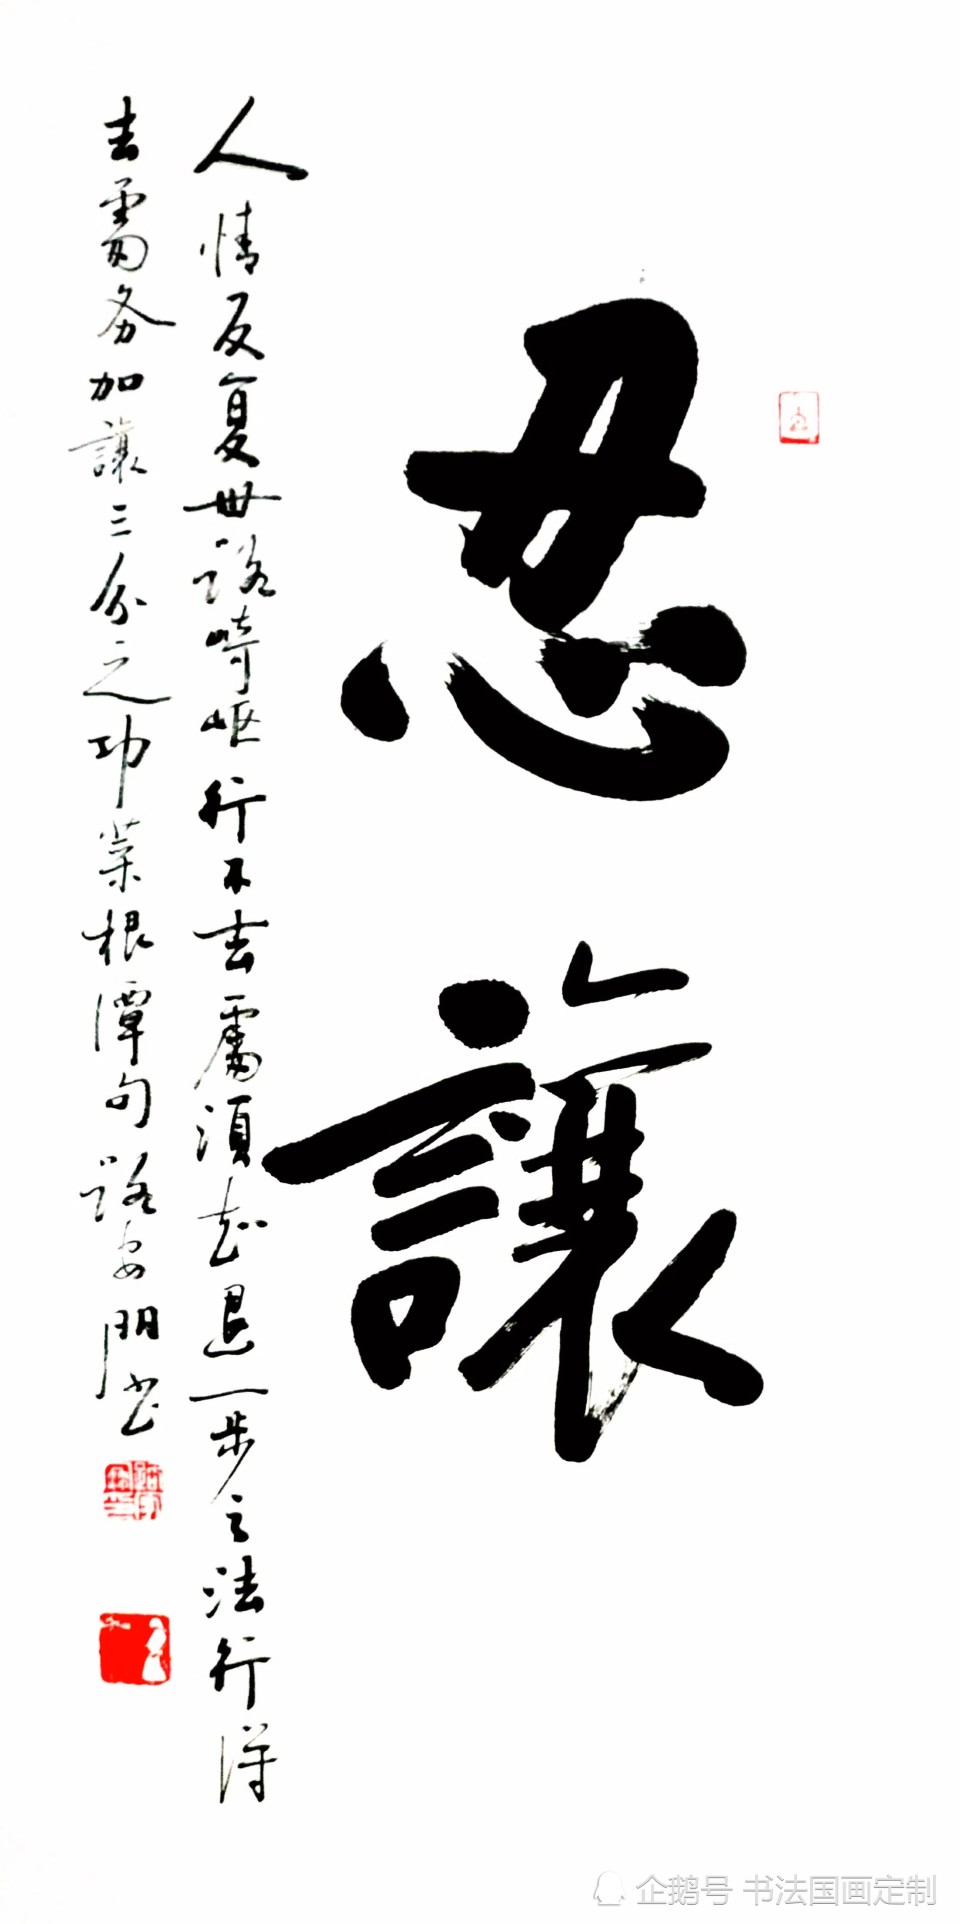 忍讓
人情反复世路崎岖行不去處須知退一步之法行得
去處务加讓三分之功菜根潭句路安門书
企鹅号 书法国画定制